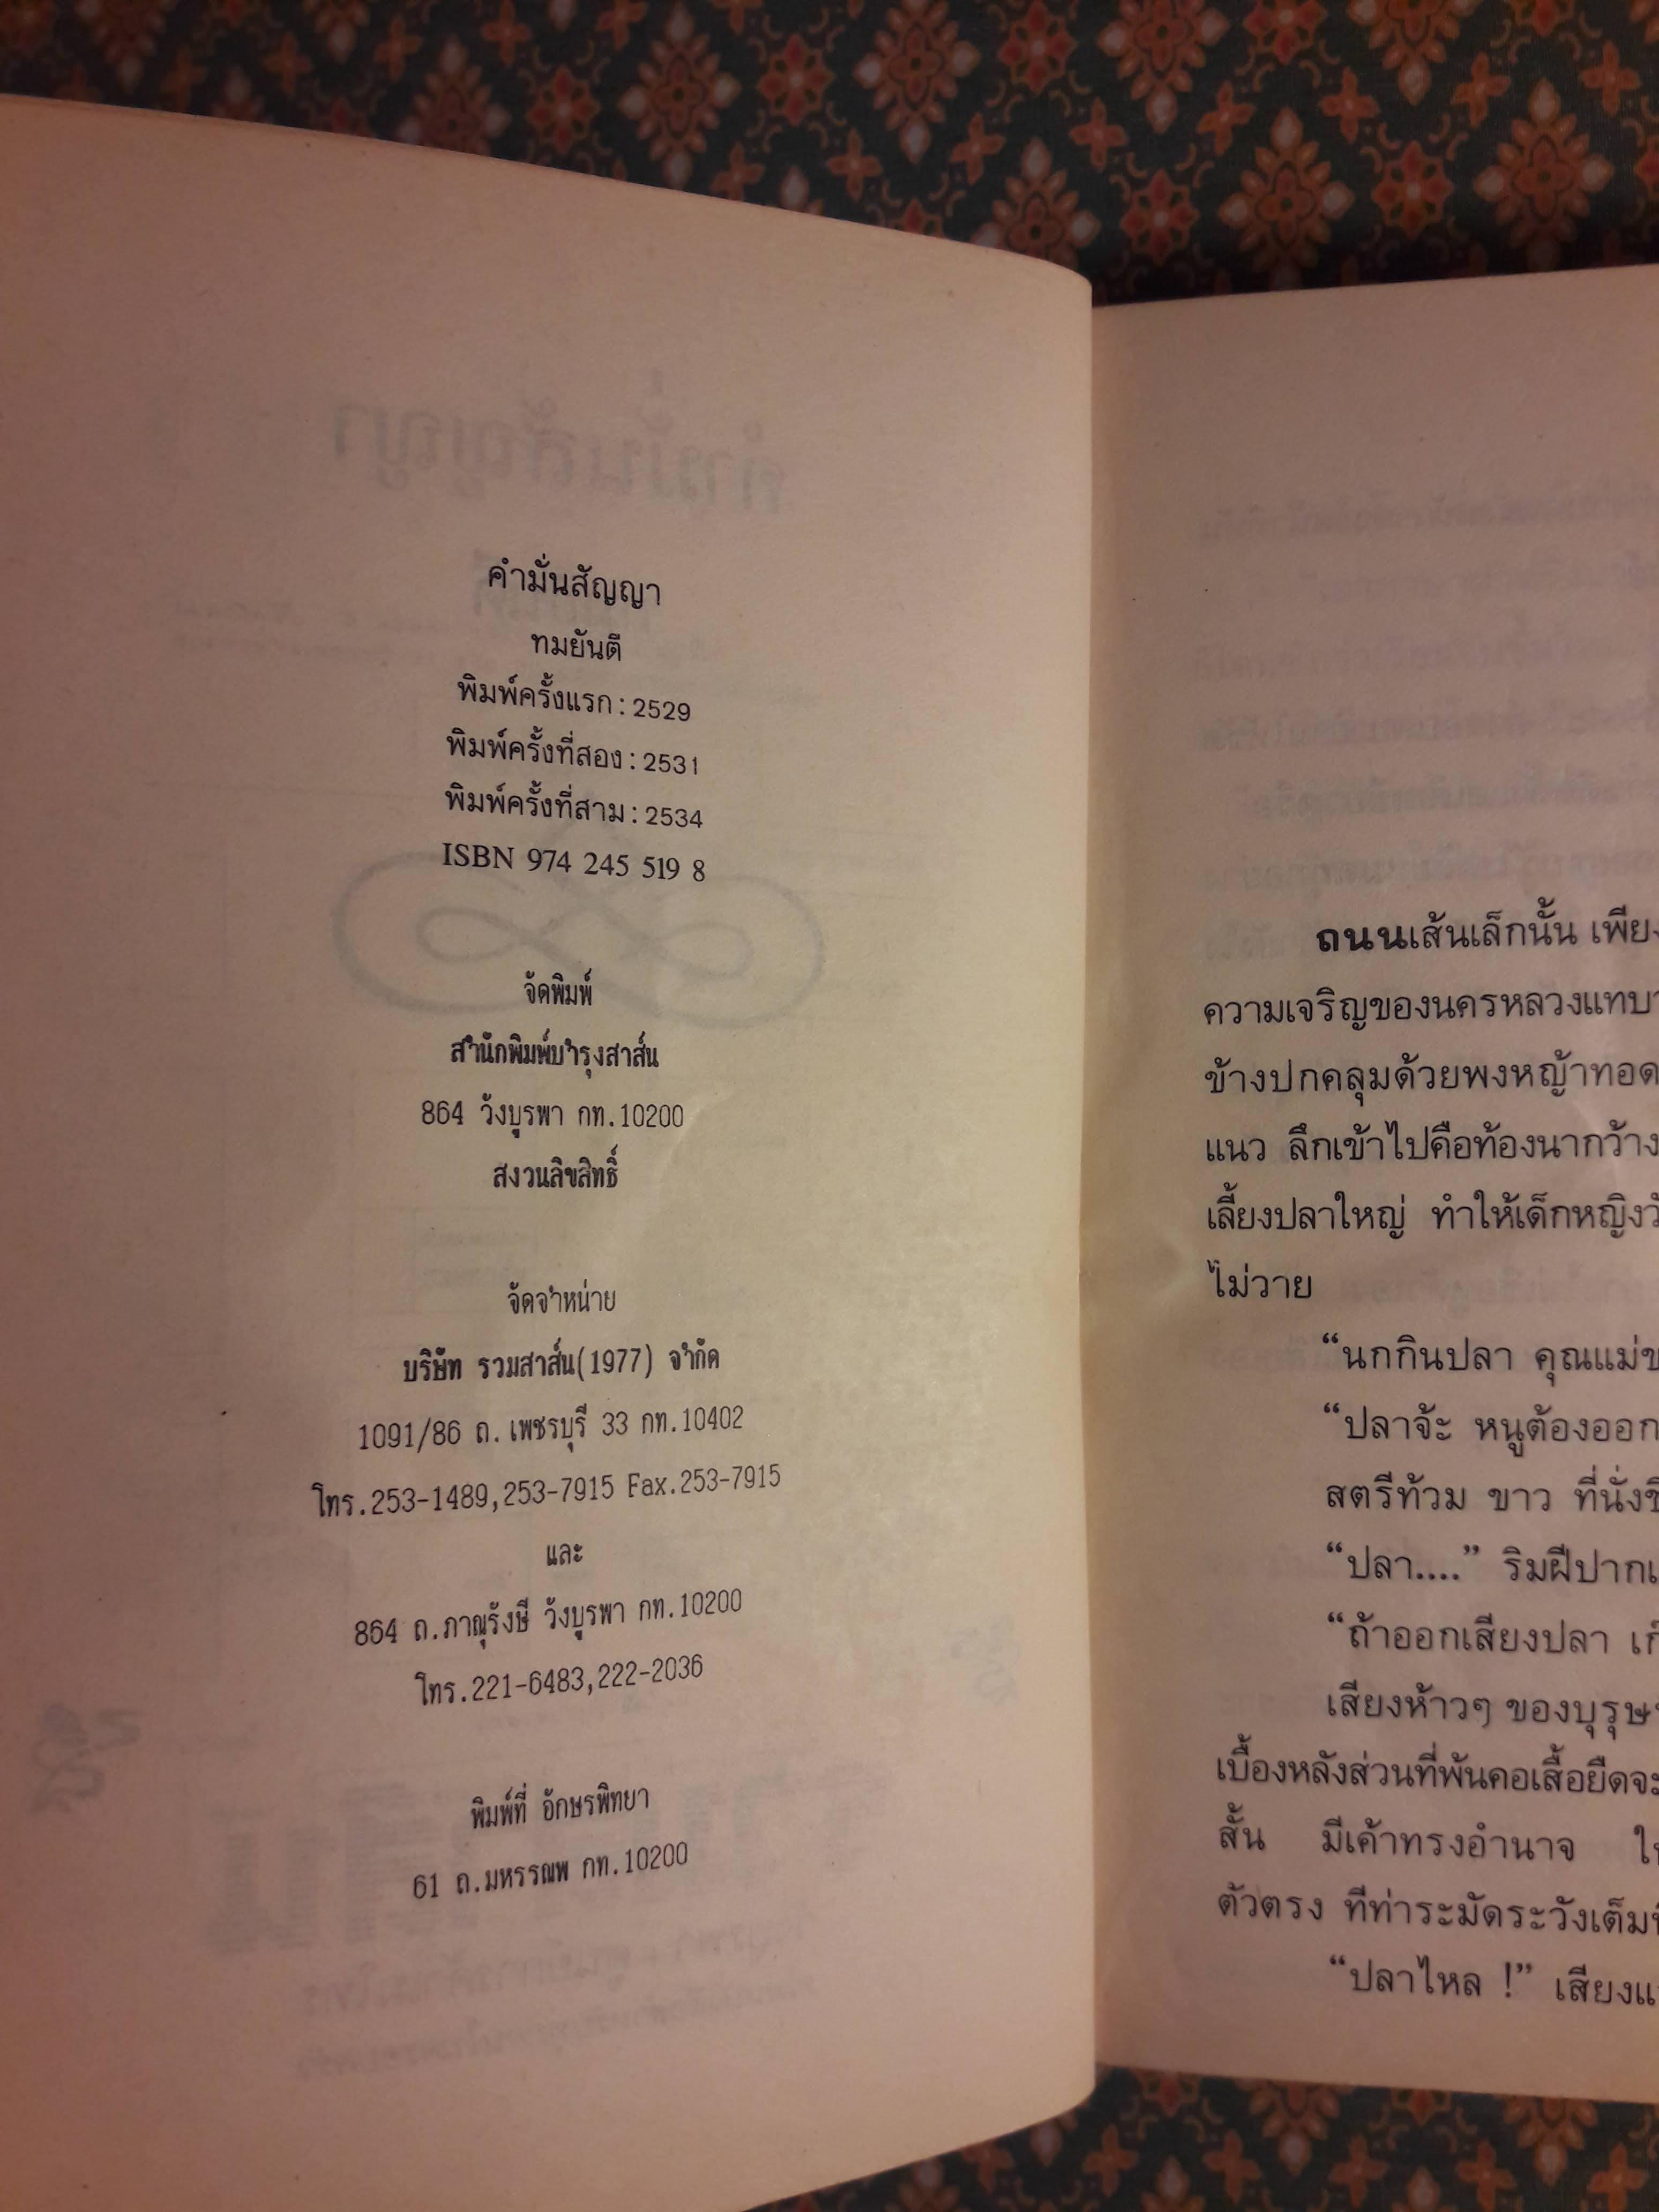 คำมั่นสัญญา
ทมยันตี
พิมพ์ครั้งแรก : 2529
พิมพ์ครั้งที่สอง : 2531
พิมพ์ครั้งที่สาม : 2534
ISBN 974 245 519 8
จัดพิมพ์
สำนักพิมพ์บำรุงสาส์น
864 วังบูรพา กท.10200
สงวนลิขสิทธิ์
จัดจำหน่าย
บริษัท รวมสาส์น(1977) จำกัด
1091/86 ถ.เพชรบุรี 33 กท.10402
โทร.253-1489,253-7915 Fax.253-7915
และ
864 ถ.ภาณุรังษี วังบูรพา กท.10200
โทร.221-6483,222-2036
พิมพ์ที่ อักษรพิทยา
61 ถ.มหรรณพ กท.10200
ถนนเส้นเล็กนั้น เพียง
ความเจริญของนครหลวงแทบ
ข้างปกคลุมด้วยพงหญ้าทอด
แนว ลึกเข้าไปคือท้องนากว้าง
เลี้ยงปลาใหญ่ ทำให้เด็กหญิง
ไม่วาย
“นกกินปลา คุณแม่
“ปลาจ้ะ หนูต้องออก
สตรีท้วม ขาว ที่นั่ง
“ปลา....” ริมฝีปาก
“ถ้าออกเสียงปลา
เสียงห้าวๆ ของบุรุษ
เบื้องหลังส่วนที่พ้นคอเสื้อยืดจะ
สั้น มีเค้าทรงอำนาจ
ตัวตรง ทีท่าระมัดระวังเต็ม
“ปลาไหล !” เสียง